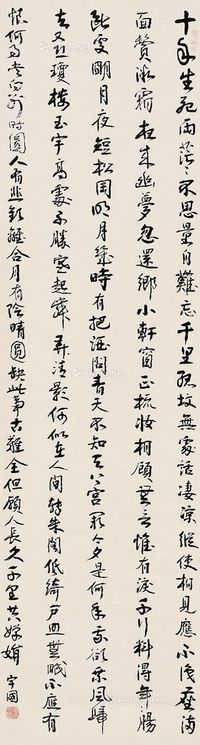 十年生死兩茫茫不思量自難忘千里孤墳無處話凄涼縱使相見應不識塵滿
面鬢如霜夜來幽夢忽還鄉小軒窗正梳妝相顧無言惟有淚千行料得年年腸
斷處明月夜短松岡明月幾時有把酒問青天不知天上宮闕今夕是何年我欲乘風歸
去又恐瓊樓玉宇高處不勝寒起舞弄清影何似在人間轉朱閣低綺戶照無眠不應有
恨何事長向別時圓人有悲歡離合月有陰晴圓缺此事古難全但願人長久千里共嬋娟